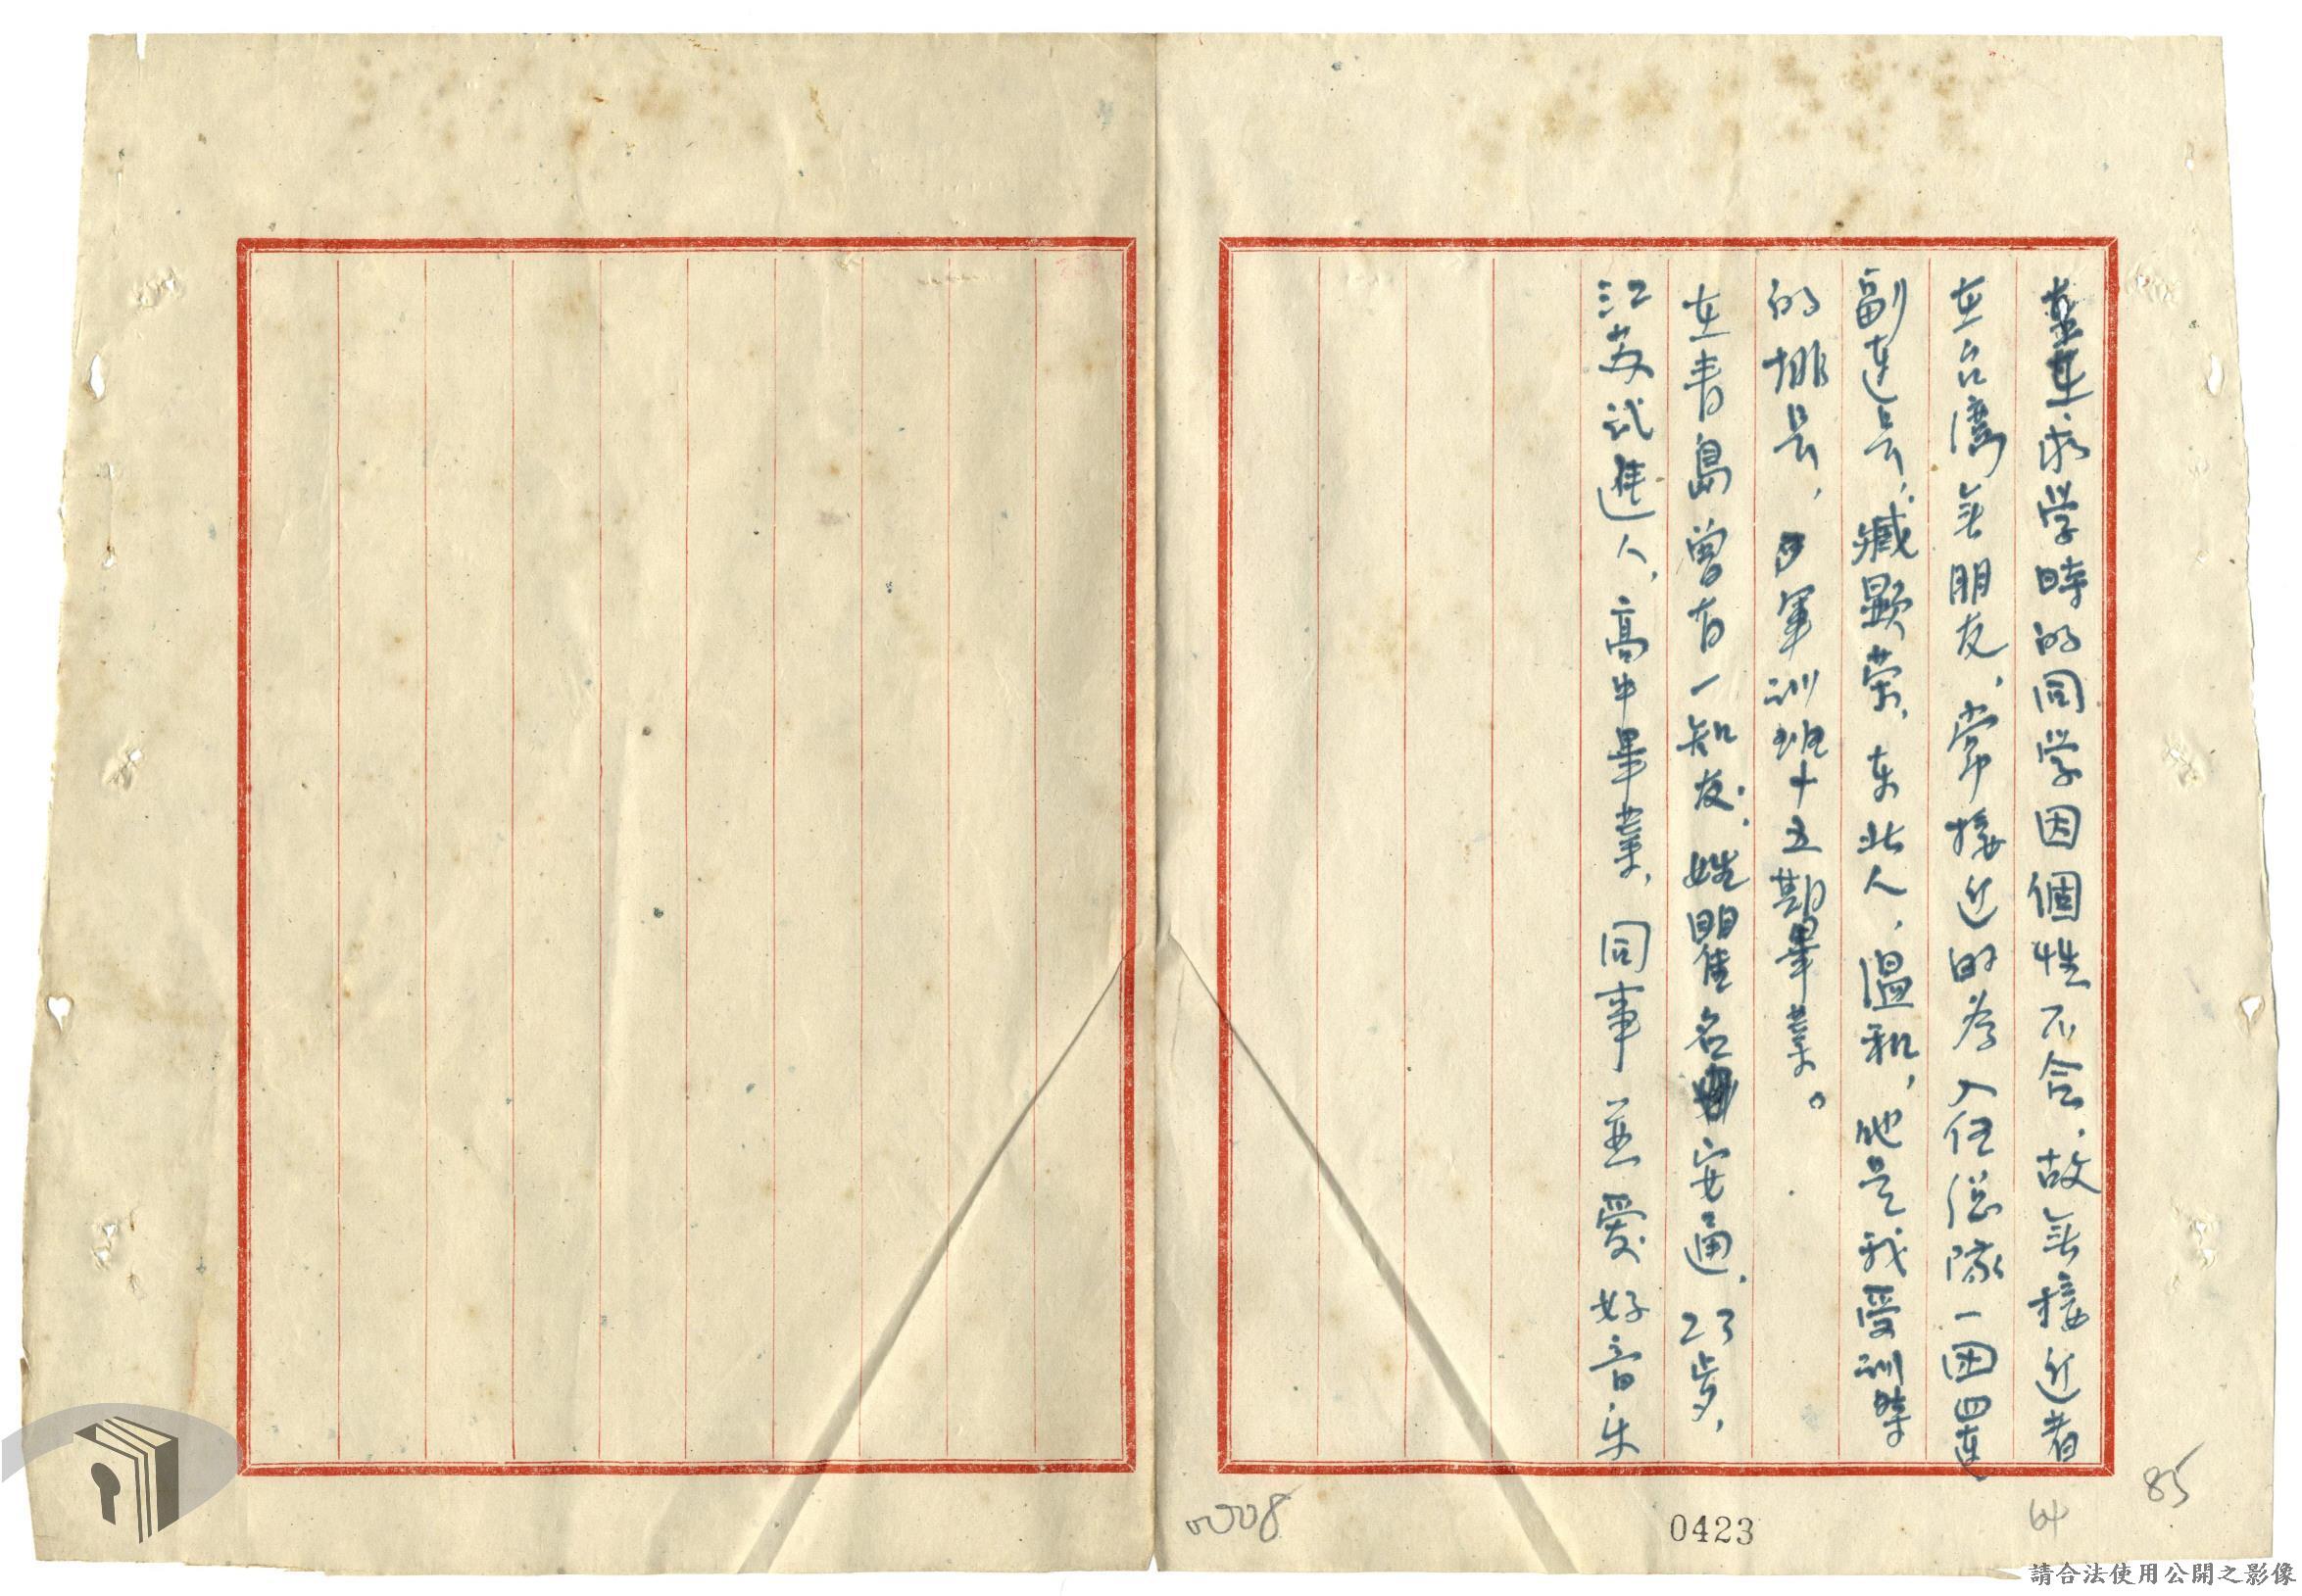 求学時的同学因個性不合，故無接近者
在台灣無朋友，常接近的為入伍總隊一团四連
副連長，臧顕荣，东北人，温和，他是我受訓時
的排長，軍訓班十五期畢業。
在青島曾有一知友，姓瞿名安通，23歩，
江苏武進人，高中畢業，同事並爱好音乐
0008
0423
64
85
請合法使用公開之影像